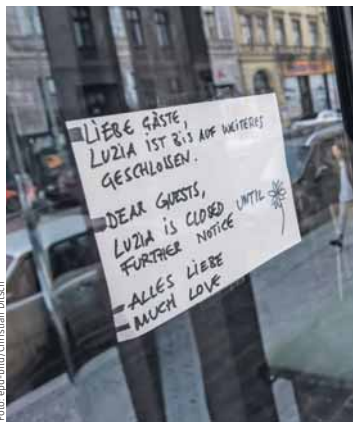 LIEBE GÄSTE,
LUZIA IST BIS AUF WEITERES
GESCHLOSSEN.
DEAR GUESTS,
LUZIA IS CLOSED UNTIL
FURTHER NOTICE
ALLES LIEBE
MUCH LOVE
Foto: epd-bild/Christian Ditsch